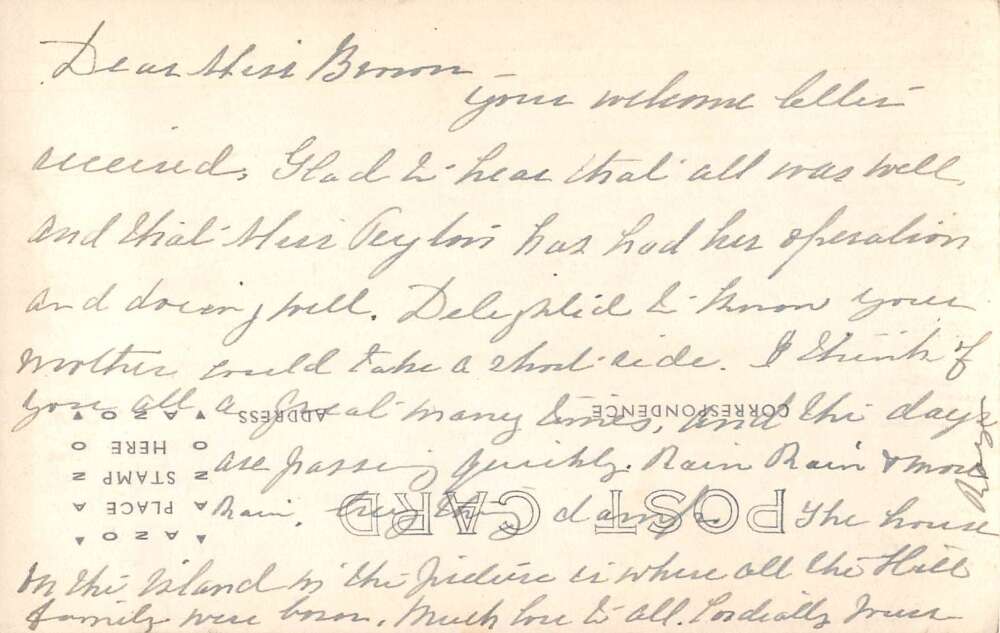 Dear Miss Brown
your welcome letter
received, Glad to hear that all was well,
and that Miss Peyton has had her operation
and doing well. Delighted to know your
mother could take a short ride. I think of
you all a great many times, and the days
are passing quickly. Rain Rain & more
Rain, everything damp. The house
on the island in the picture is where all the Hill
family were born. Much love to all. Cordially Yours
CORRESPONDENCE
ADDRESS
POST CARD
AZO
PLACE
STAMP
HERE
AZO